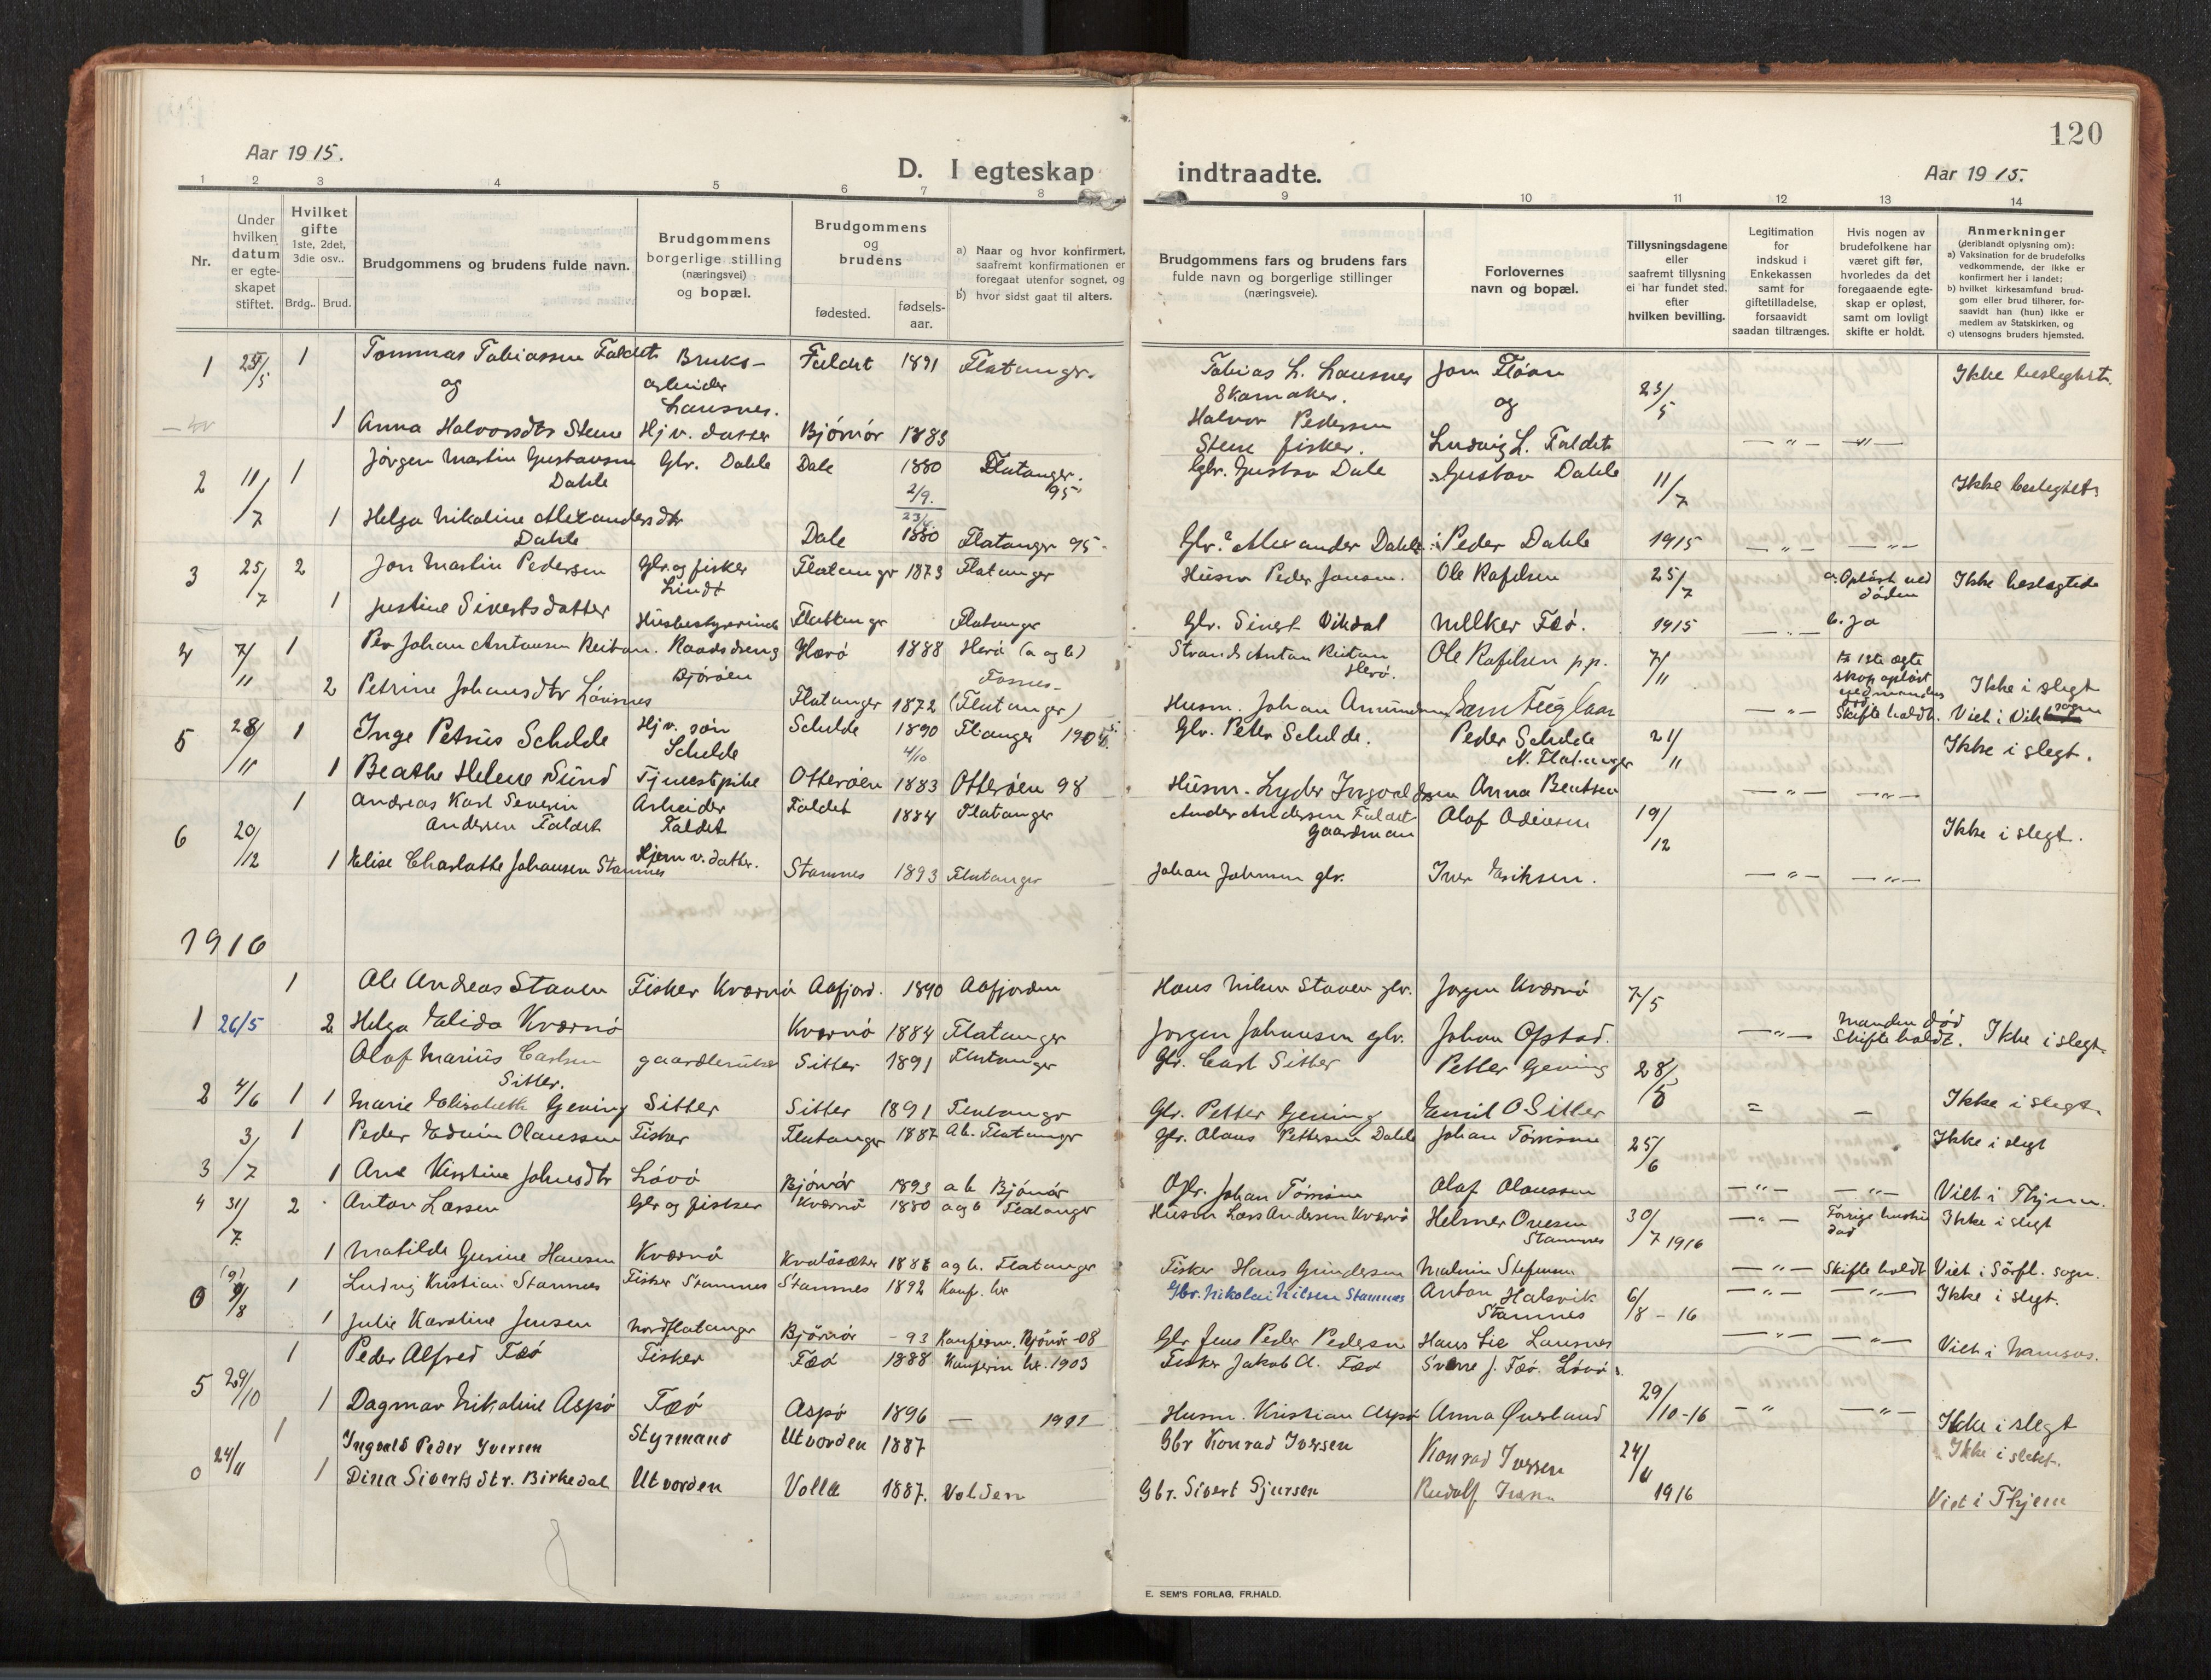 120
Aar 1915.
D. I egteskap indtraadte.
Aar 1915.
1 2 3 4 5 6 7 8 9 10 11 12 13 14
Nr.
Under hvilken datum er egte-skapet stiftet.
Hvilket gifte 1ste, 2det, 3die osv..
Brdg.. Brud.
Brudgommens og brudens fulde navn.
Brudgommens borgerlige stilling (næringsvei) og bopæl.
Brudgommens og brudens
fødested. fødsels-aar.
a) Naar og hvor konfirmert, saafremt konfirmationen er foregaat utenfor sognet, og
b) hvor sidst gaat til alters.
Brudgommens fars og brudens fars fulde navn og borgerlige stillinger (næringsveie).
Forlovernes navn og bopæl.
Tillysningsdagene eller saafremt tillysning ei har fundet sted, efter hvilken bevilling.
Legitimation for indskud i Enkekassen samt for giftetilladelse, forsaavidt saadan tiltrænges.
Hvis nogen av brudefolkene har været gift før, hvorledes da det foregaaende egte-skap er opløst, samt om lovligt skifte er holdt.
Anmerkninger (deriblandt oplysning om):
a) Vaksination for de brudefolks vedkommende, der ikke er konfirmert her i landet;
b) hvilket kirkesamfund brud-gom eller brud tilhører, for-saavidt han (hun) ikke er medlem av Statskirken, og
c) utensogns bruders hjemsted.
1 1 Tommas Tobiassen Faldet Bruks- Faldet 1891 Flatanger. Tobias L. Lausnes Jon Fløan Ikke beslegtet.
og arbeider Skomaker. og 23/5
Lausnes. Halvor Pedersen
1 Anna Halvorsdtr Stene Hjv. datter Bjørnør 1883 Stene fisker. Ludvig L. Faldet — " — — " —
2 11/7 1 Jørgen Martin Gustavsen Glr. Dahle Dale 1880 Flatanger. Gbr. Gustav Dale Gustav Dahle 11/7 Ikke beslegtet.
Dahle 2/9. 95
23/4.
1 Helga Nikoline Alexandersdtr
Dahle Dale 1880 Flatanger 95 Glr. Alexander Dahle Peder Dahle 1915 — " — — " —
3 25/7 2 Jon Martin Pedersen Glr. og fisker Flatanger 1873 Flatanger Husm Peder Jonsen. Ole Rafelsen 25/7 a. Opløst ved Ikke beslegtede
Lindt døden
1 Justine Sivertsdatter Husbestyrerinde Flatanger Flatanger Glr. Sivert Vikdal Melker Fæø. 1915 — " — b. ja
4 7/11 1 Per Johan Antonsen Reitan. Raadsdreng Herø 1888 Herø (a og b) Strands. Anton Reitan Ole Rafelsen p.p. 7/11 1ste egte
Bjørøen Fosnes- Herø. skap opløst
2 Petrine Johansdtr Løvsnes Flatanger 1872 (Flatanger) Husm. Johan Ikke i slegt
— " — Skifte holdt. Viet i Vik sogn
5 28/11 1 Inge Petrus Schelde Hjv. søn Schelde 1890 Glr. Peter Schelde. Peder Schelde 21/11 Ikke i slegt.
Schelde 4/10 N. Flatanger
1 Beathe Helene Sund Tjenestpike Otterøen 1883 Otterøen 98 Husm. Lyder Ingvaldsen Anna Bentsen — " — — " —
1 Andreas Karl Severin Arbeider Faldet 1884 Flatanger Anders Andersen Faldet Olaf 19/12
6 20/12 Andersen Faldet Faldet Gaardman Ikke i slegt.
1 Elise Charlotte Johansen Stamnes Hjem v. datter. Stamnes 1893 Flatanger Johan Johnsen glr. Iver Eriksen. — " — — " —
1916
1 Ole Andreas Staven Fisker Kværnø Aafjord. 1890 Aafjorden Hans Nilsen Staven glr. Jørgen Kværnø 7/5
1 26/5 2 Helga Elida Kværnø Kværnø 1884 Flatanger Jørgen Johansen glr. Johan Opstad. — " — Manden død Ikke i slegt.
Skifte holdt.
Olaf Marius Carlsen gaardbruker Sitter 1891 Flatanger Glr. Carl Sitter Petter Gening 28/5
Sitter.
2 4/6 1 1 Marie Elisabeth Gening Sitter Sitter 1891 Flatanger Glr. Petter Gening Emil O Sitter = — Ikke i slegt.
3/7 1 Peder Edvin Olaussen Fisker Flatanger 1887 Ab. Flatanger Glr. Olaus Pettersen Dahle Johan Tørrisen 25/6 Ikke i slegt
3 1 Ane Kirstine Johnsdtr Løvø Bjørnør 1893 a b Bjørnør Johan Tørrisen Olaf Olaussen — " — — " — Viet i Thjem.
4 31/7. 2 Anton Larsen Glr og fisker Kværnø 1880 a og b Flatanger Husm Lars Andersen Kværnø Helmer Ovesen 30/7 1916 — " — Forrige hustru Ikke i slegt
Stamnes død
1 Matilde Gurine Hansen Kværnø Kvaløsæter 188 a og b. Flatanger Fisker Hans Gundersen Malvin Stefansen — " — Skifte holdt Viet i Sørfl. sogn.
(9)
0 9/8 1 Ludvig Kristian Stamnes Fisker Stamnes Stamnes 1892 Konf. her Gbr. Nikolai Nilsen Stamnes Anton Halsvik 6/8 - 16 — " — — " — Ikke i slegt.
Stamnes
1 Julie Karoline Jensen Nordflatanger Bjørnør - 93 Konfirm. Bjørnør -08 Glr Jens Peder Pedersen Hans Lie Lausnes — " — — " — Viet i Namsos.
1 Peder Alfred Fæø Fisker Fæø 1888 Konfirm her. 1903 Fisker Jakob A. Fæø Sverre J. Fæø. Løvø
5 29/10 1 Dagmar Nikoline Aspø Fæø Aspø 1896 — 1911 Husm. Kristian Aspø Anna Øverland 29/10-16 — " — " — Ikke i slegt
1 Ingvald Peder Iversen Styrmand Utvorden 1887 Gbr Konrad Iversen Konrad Iversen 24/11 Ikke i slekt.
0 24/11 1 Dina Sivertsdtr. Birkedal Utvorden Volla 1887. Volden Gbr. Sivert Gjursen Rudolf 1916 Viet i Thjem
E. SEM'S FORLAG, FR.HALD.